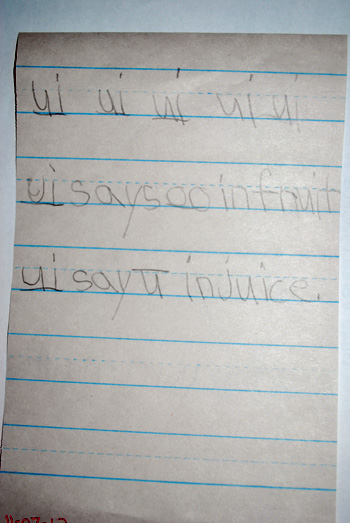 ui ui ui ui ui
ui says oo in fruit
ui say ū in juice.